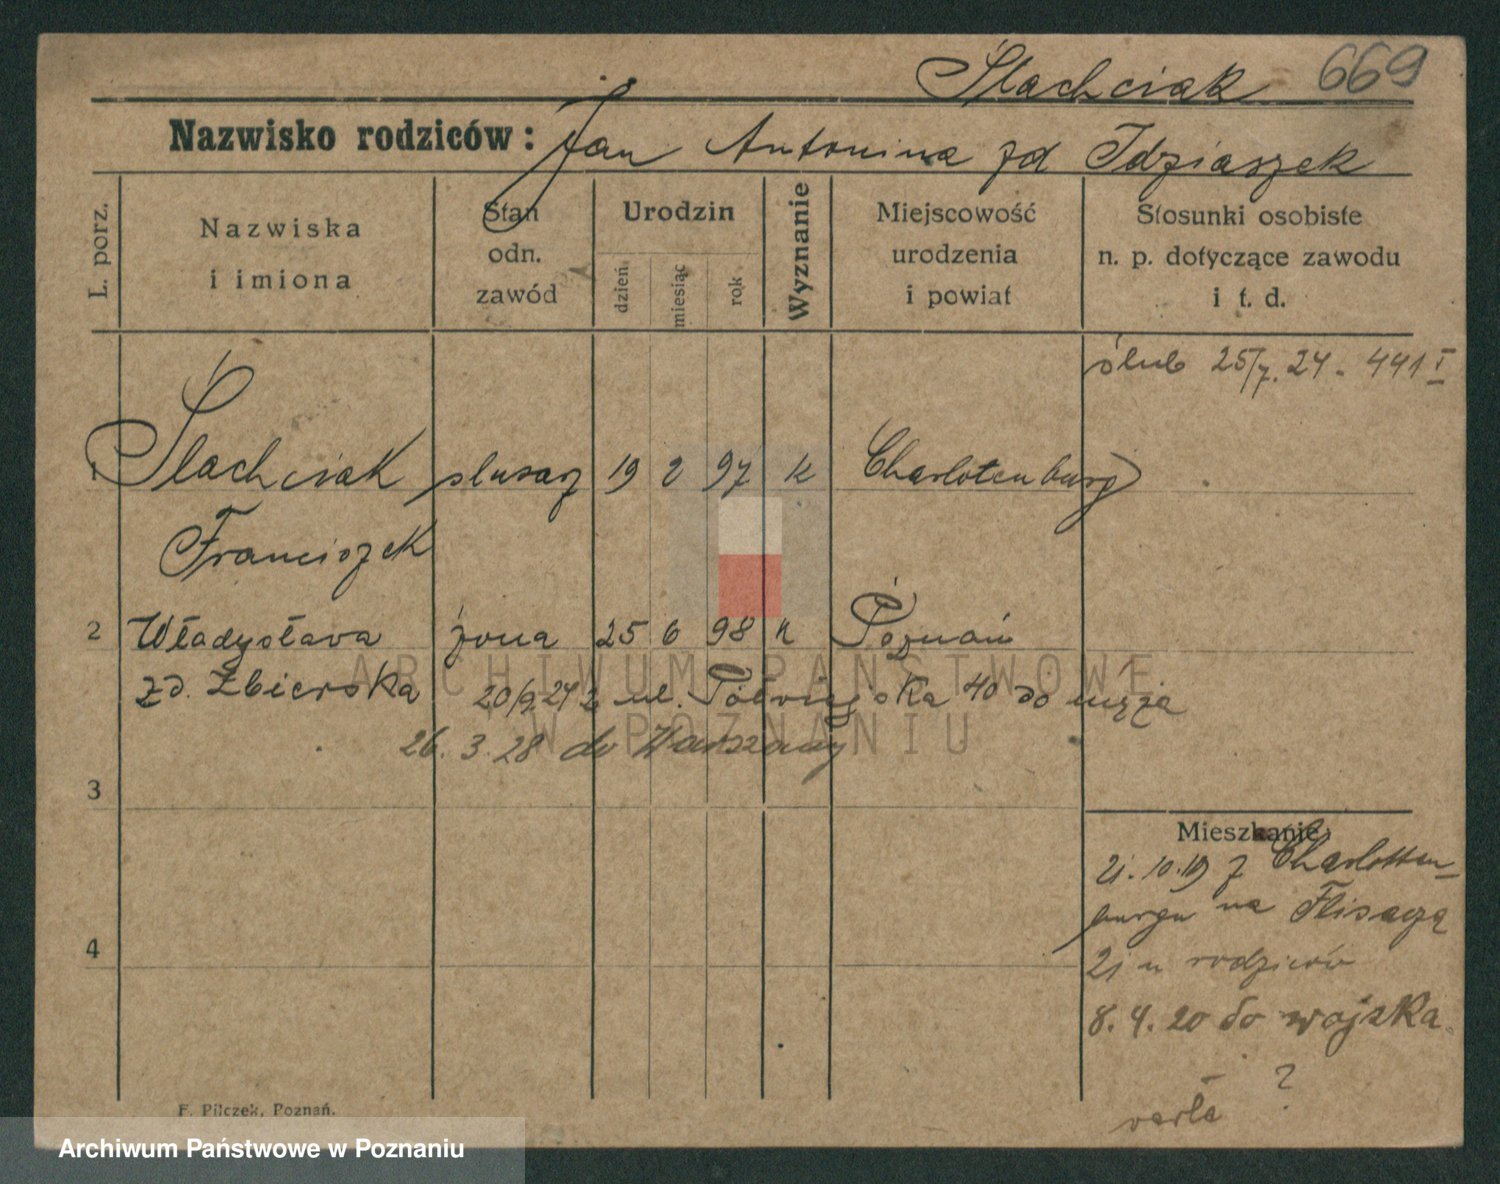 Ślachciak 669
Nazwisko rodziców: Jan Antonina zd Idziaszek
L. porz.
Nazwiska
i imiona
Stan
odn.
zawód
Urodzin
dzień
miesiąc
rok
Wyznanie
Miejscowość
urodzenia
i powiat
Stosunki osobiste
n. p. dotyczące zawodu
i t. d.
ślub 25/7. 24. 441 I
1 Ślachciak ślusarz 19 2 97 k Charlotenburg
Franciszek
2 Władysława żona 25 6 98 k Poznań
zd. Zbierska 20/9 24 z ul. Półwiejska 40 do męża
26. 3. 28 do Warszawy
3
Mieszkanie:
21. 10. 19 z Charlotten-
burga na Flisaczą
21 u rodziców
4
8. 4. 20 do wojska
?
F. Pilczek, Poznań.
ARCHIWUM PAŃSTWOWE
W POZNANIU
Archiwum Państwowe w Poznaniu